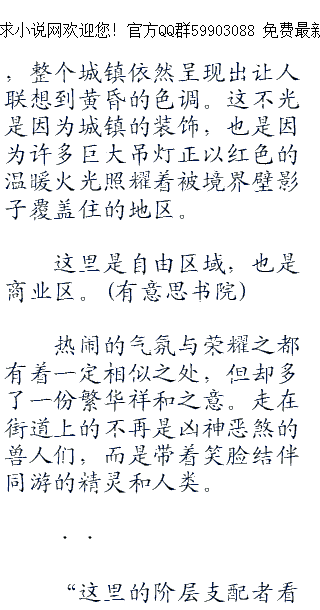 求小说网欢迎您！官方QQ群59903088 免费最新
，整个城镇依然呈现出让人
联想到黄昏的色调。这不光
是因为城镇的装饰，也是因
为许多巨大吊灯正以红色的
温暖火光照耀着被境界壁影
子覆盖住的地区。
这里是自由区域，也是
商业区。(有意思书院)
热闹的气氛与荣耀之都
有着一定相似之处，但却多
了一份繁华祥和之意。走在
街道上的不再是凶神恶煞的
兽人们，而是带着笑脸结伴
同游的精灵和人类。
．．
“这里的阶层支配者看